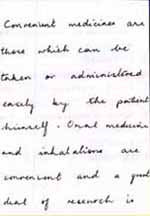 Convenient medicines are
those which can be
taken or administered
easily by the patient
himself. Oral medicine
and inhalations are
convenient and a good
deal of research is